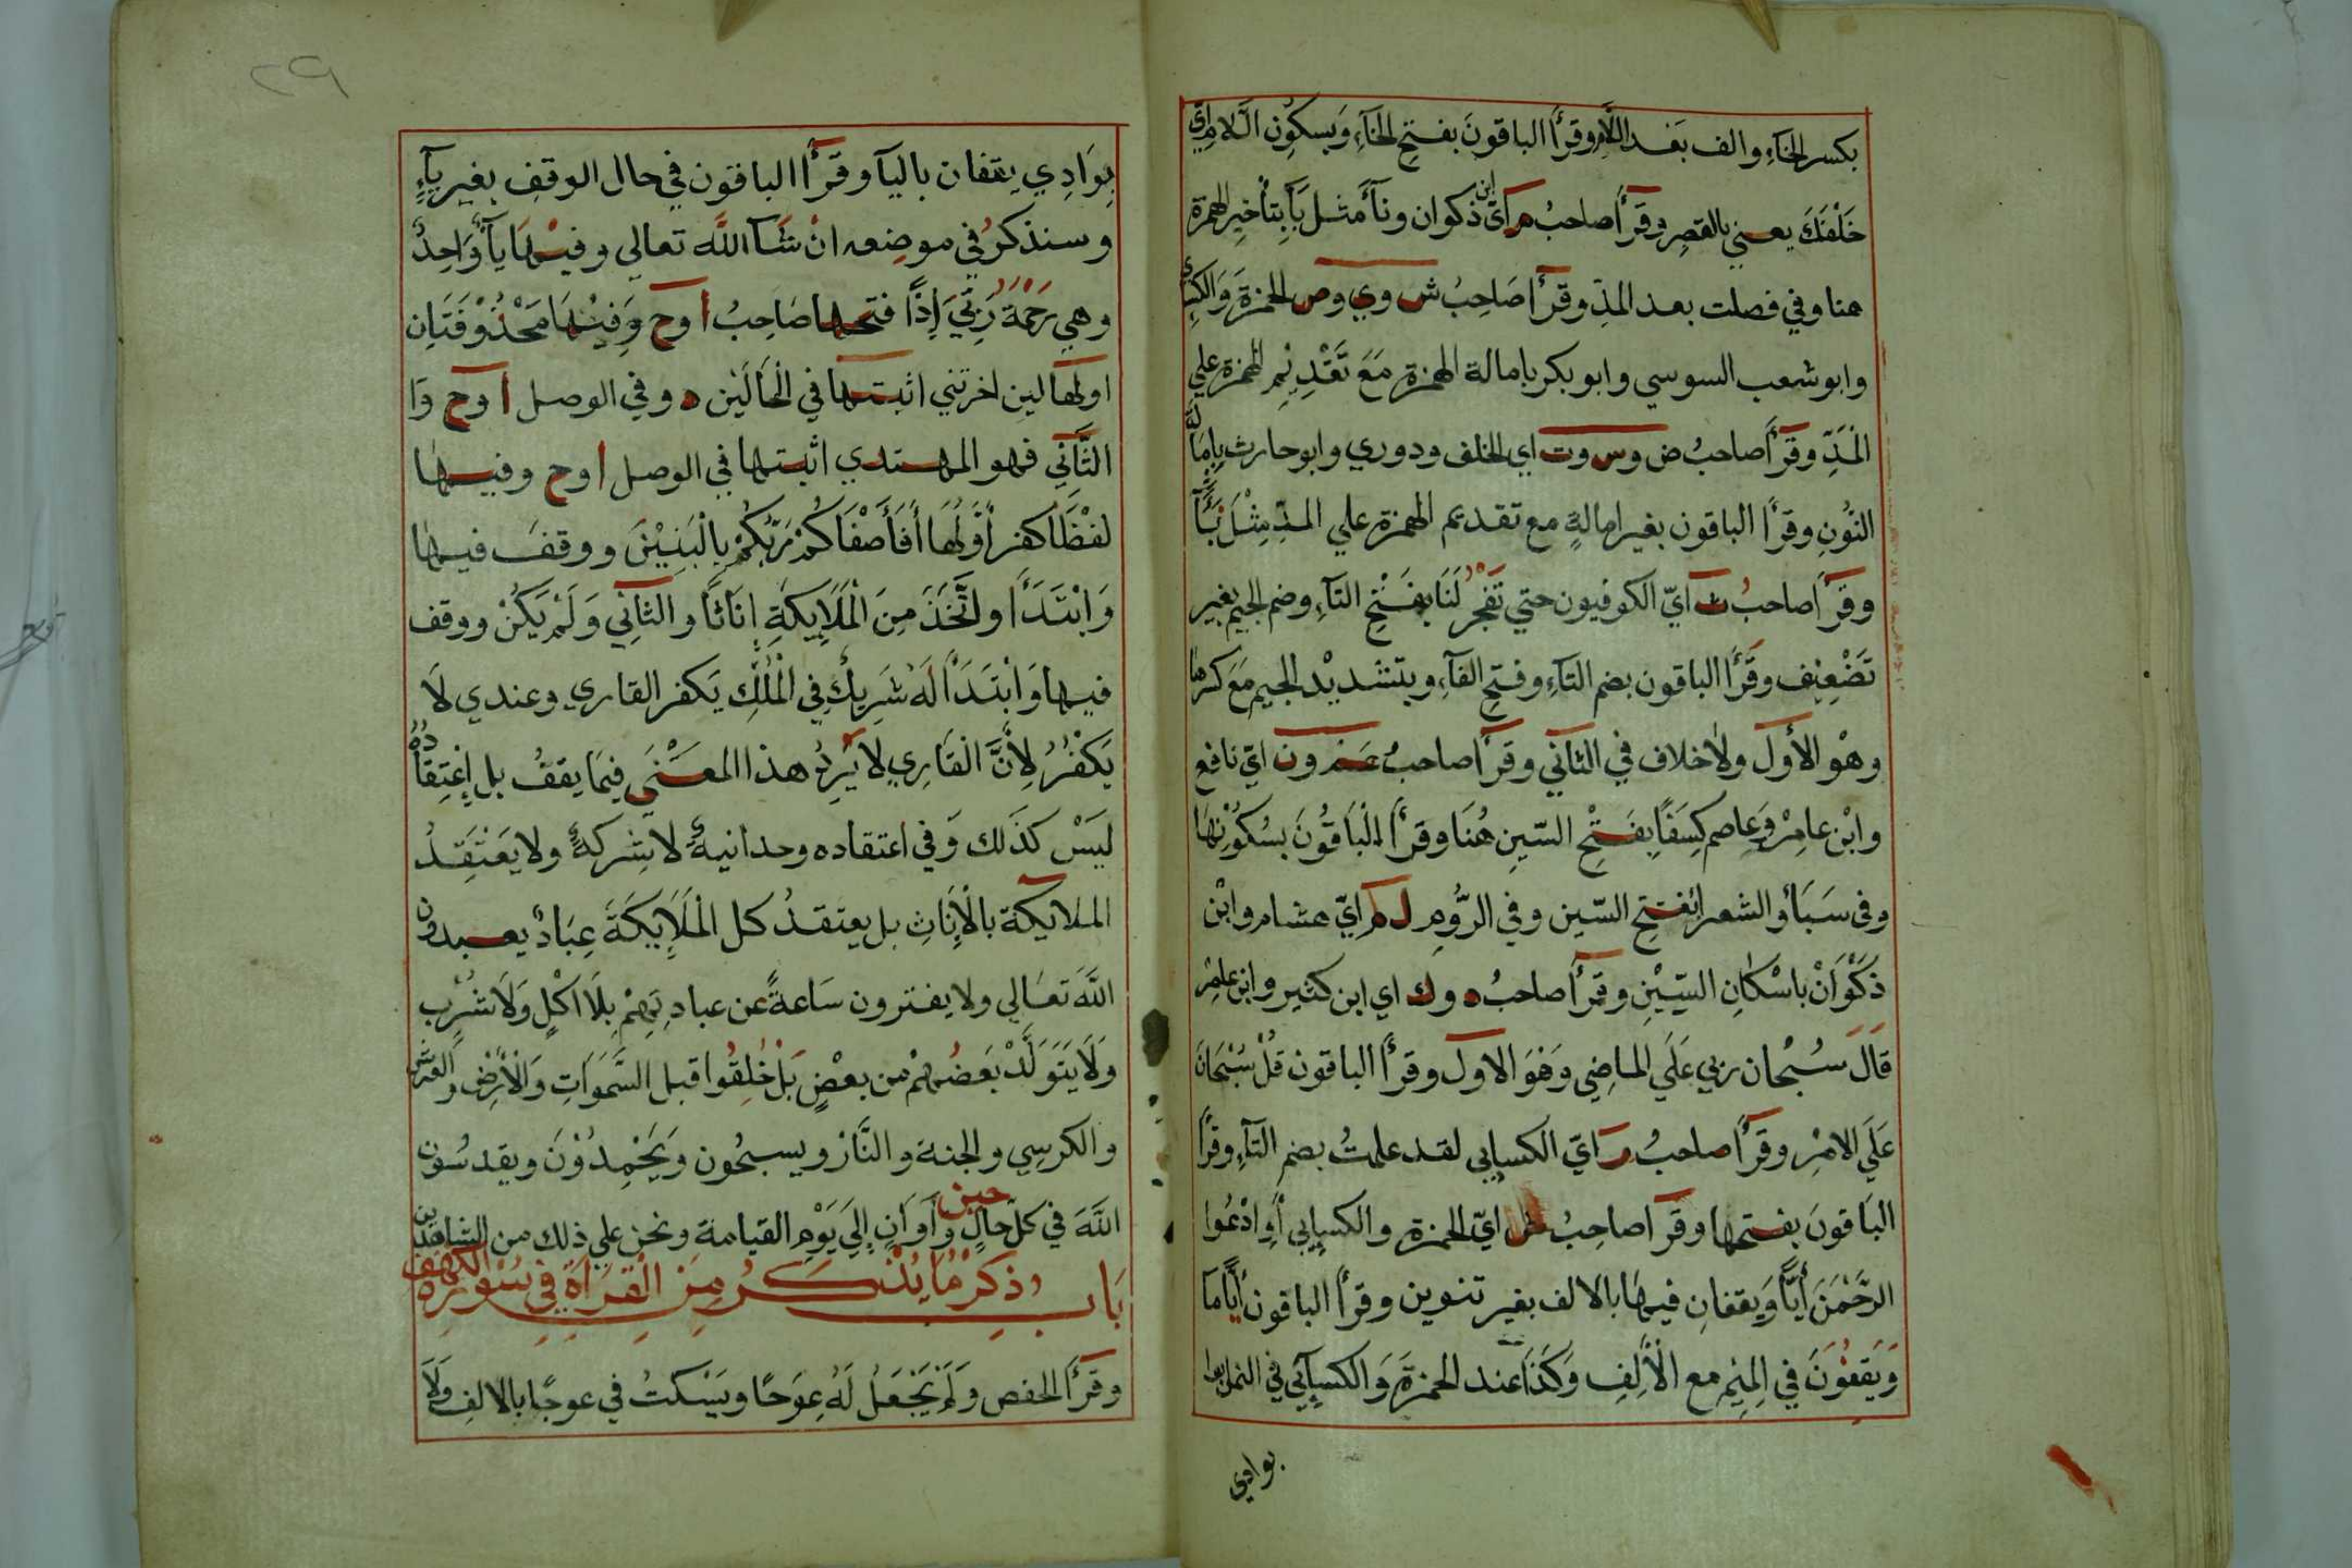 بكسر الخآءِ والف بَعْد اللَّامِ وقرأ الباقونَ بفتحِ الخآءِ وَبسكُونِ الّلامِ ايّ
خَلْفَكَ يعني بالقصرِ وقرأ صاحبُ م ايّ ابن ذكوان ونآءَ مثل بَآءَ بتأخيرِ الهمزة
هنا وفي فصلت بعد المدِّ وقرأ صَاحِبُ ش وي وص الحمزة وَالكسا
وابو شعب السوسي وابو بكر بامالة الهمزة مَعَ تَقْدِيْمِ الهمزة علي
الْمَدِّ وقرأ صاحبُ ض وس وت اي الخلف ودوري وابو حارث بِامَالَة
النُّونِ وقرأ الباقون بغير امالةٍ مع تقديم الهمزة علي المدِّ مِثْلَ
وقرأ صاحبُ ث ايّ الكوفيون حتي تَفْجُرَ لَنَا بِفَتْحِ التآءِ وضم الجيم بغير
تَضْعِيْف وقَرأ الباقون بضم التآءِ وفتح الفآءِ وبتشديْد الجيم مَعَ كسرها
وهُو الأول ولا خلاف في الثانّي وقرأ صاحبُ عَمَّ ون ايّ نافع
وابْن عامِرْ وَعاصم كِسَفًا بِفَتْحِ السّينِ هُنَا وقرأ الْبَاقُونَ بسُكُوْنِهَا
وفي سَبَأ والشعرا بفتحِ السّين وفي الرُّومِ ل م ايّ هشام وابْن
ذَكْوَانْ بِاسْكَانِ السّيْنِ وقرأ صاحبُ د وك اي ابن كثير وابن عامر
قَالَ سُبْحان ربي عَلَي الماضِي وَهْوَ الاول وقرأ الباقون قُلْ سُبْحَانَ
عَلَي الامْرِ وقرأ صاحبُ ر ايّ الكسايي لقد علمتُ بضم التآءِ وقرأ
البَاقونَ بفتحها وقرأ صاحِبُ ايّ الحمزة والكسايي أوِ ادْعُوا
الرَّحْمَنَ أيًّا وَيقفانِ فيهَا بالالف بغير تنوين وقرأ الباقون أيَّامَا
وَيَقِفُوْنَ في المِيْمِ مع الْأَلِفِ وَكَذَا عند الحمزةَ وَالكسآيي في النمل بوا
بوادي
٢٩
بِوَادِي يِقفان باليآ وقَرأ الباقون في حال الوقفِ بغير يآءٍ
وسنذكرُ في موضعه انْ شَآ اللَّه تعالي وفيْهَا يآءٌ وَاحِدٌ
وهي رَحْمَةُ رَبِّيَ إِذًا فتحها صَاحِبُ ا وح وَفِيْهَا مَحْذُوْفَتَانِ
اولها لين اخرتني اثبتها في الْحَالَيْنِ د وفي الوصل ا وح وَا
الثَّانِي فهو المهتدي اثبتها في الوصل ا وح وفيها
لفْظَا كفر أَوَّلُهَا أَفَأَصْفَاكُمْ رَبُّكُمْ بِالْبَنِيْنَ ووقفَ فيها
وَابْتَدَأ واتَّخَذَ مِنَ الْمَلَايِكَةِ اِنَاثًا والثانِي وَلَمْ يَكُنْ ووقف
فيها وَابْتَدَأ لَهُ شَرِيكٌ فِي الْمُلْكِ يَكفر القاري وعندي لَا
يَكْفُرُ لِأَنَّ الْقَارِي لَا يُرِدُ هذا المعْنَي فِيمَا يقفُ بل اِعْتِقَادُهُ
لَيَسْ كَذَلك وَفي اعتقاده وحدانيةٌ لا شركةٌ ولا يَعْتَقِدُ
الملايكة بالْاِنَاثِ بل يعتقدُ كل الْمَلَايِكَةَ عِبَادٌ يعبدون
اللَّهَ تَعَالي ولا يفترون سَاعةً عن عبادتِهِمْ بِلَا اكْلٍ وَلَا شُرْبٍ
وَلَا يَتَوَلَّدْ بَعَضُهُمْ من بعْضٍ بَلْ خُلِقُوا قبل السَّمَوَاتِ وَالْأَرْضِ والعَرشِ
والكرسِي والجنة والنَّارْ ويسبحُون وَيَحْمِدُوْنَ ويقدسُون
اللَّهَ في كل حالٍ حينٍ وَأَوَانٍ إِلَي يَوْمِ القيامة ونحن علي ذلك من الشاهدين
بَابُ ذِكْرِ مَا يُذْكَرُ مِنَ الْقِرَاةِ فِي سُوْرَةِ الكهف
وقَرأ الحفص وَلَمْ يَجْعَلْ لَهُ عِوَجًا ويَسْكتُ في عوجًا بالالفِ وَلَا